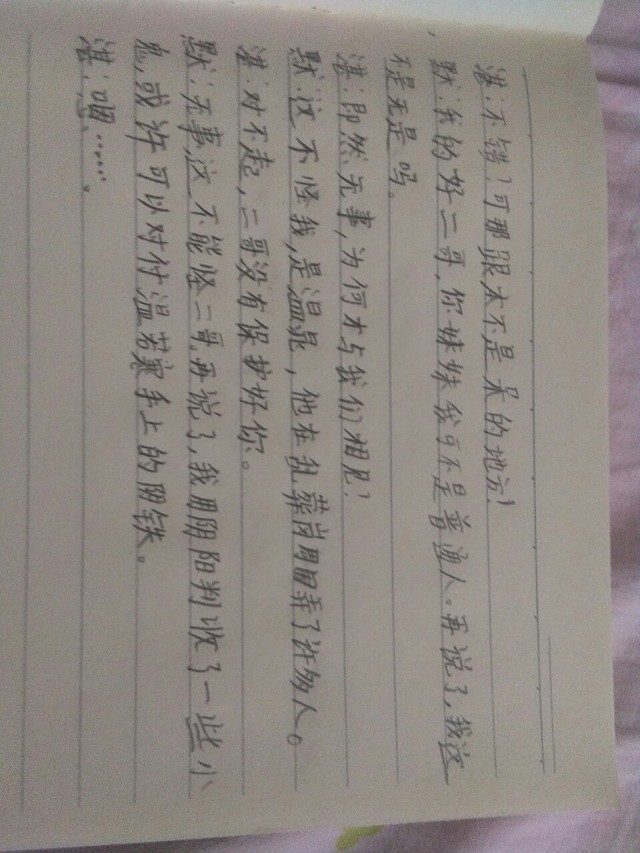 湛：不错！可那跟本不是呆的地方！
默：我的好二哥，你妹妹我可不是普通人。再说了，我这
不是无是吗。
湛：即然无事，为何才与我们相见！
默：这不怪我，是温晁，他在乱葬岗周围弄了许多人。
湛：对不起，二哥没有保护好你。
默：无事，这不能怪二哥。再说了，我用阴阳判收了一些小
鬼，或许可以对付温若寒手上的阴铁。
湛：嗯……。